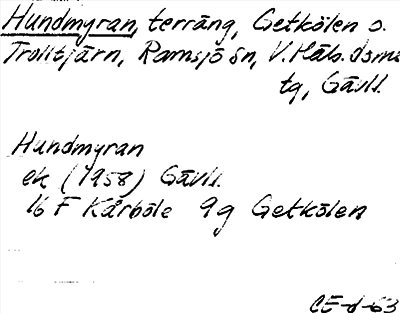 Hundmyran, terräng, Getkölen o.
Trolltjärn, Ramsjö sn, V. Häls. dsms
tg, Gävll.
Hundmyran
ek (1958) Gävll.
16 F Kårböle 9g Getkölen
CE-d-63